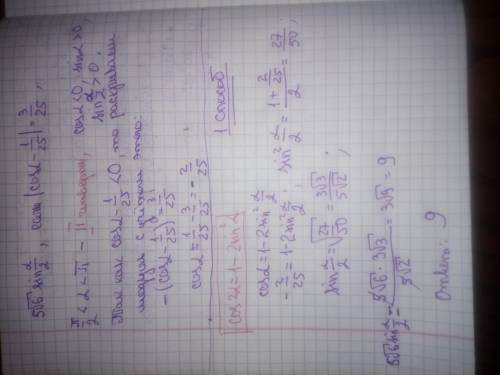 5√6 sin α/2, если |cosα - 1/25| = 3/25,
π/2 < α < π - II четверти, cosα<0, sinα>0,
sin α/2 > 0.
Так как cosα - 1/25 < 0, то раскрываем
модуль с учётом этого:
-(cosα - 1/25) = 3/25
cosα = 1/25 - 3/25 = -2/25
1 способ
cos2α = 1 - 2sin²α
cosα = 1 - 2sin² α/2
-2/25 = 1 - 2sin² α/2; sin² α/2 = (1 + 2/25)/2 = 27/50;
sin α/2 = √(27/50) = 3√3/5√2;
5√6 sin α/2 = 5√6 · 3√3/5√2 = 3√3 · √3 = 9
Ответ: 9